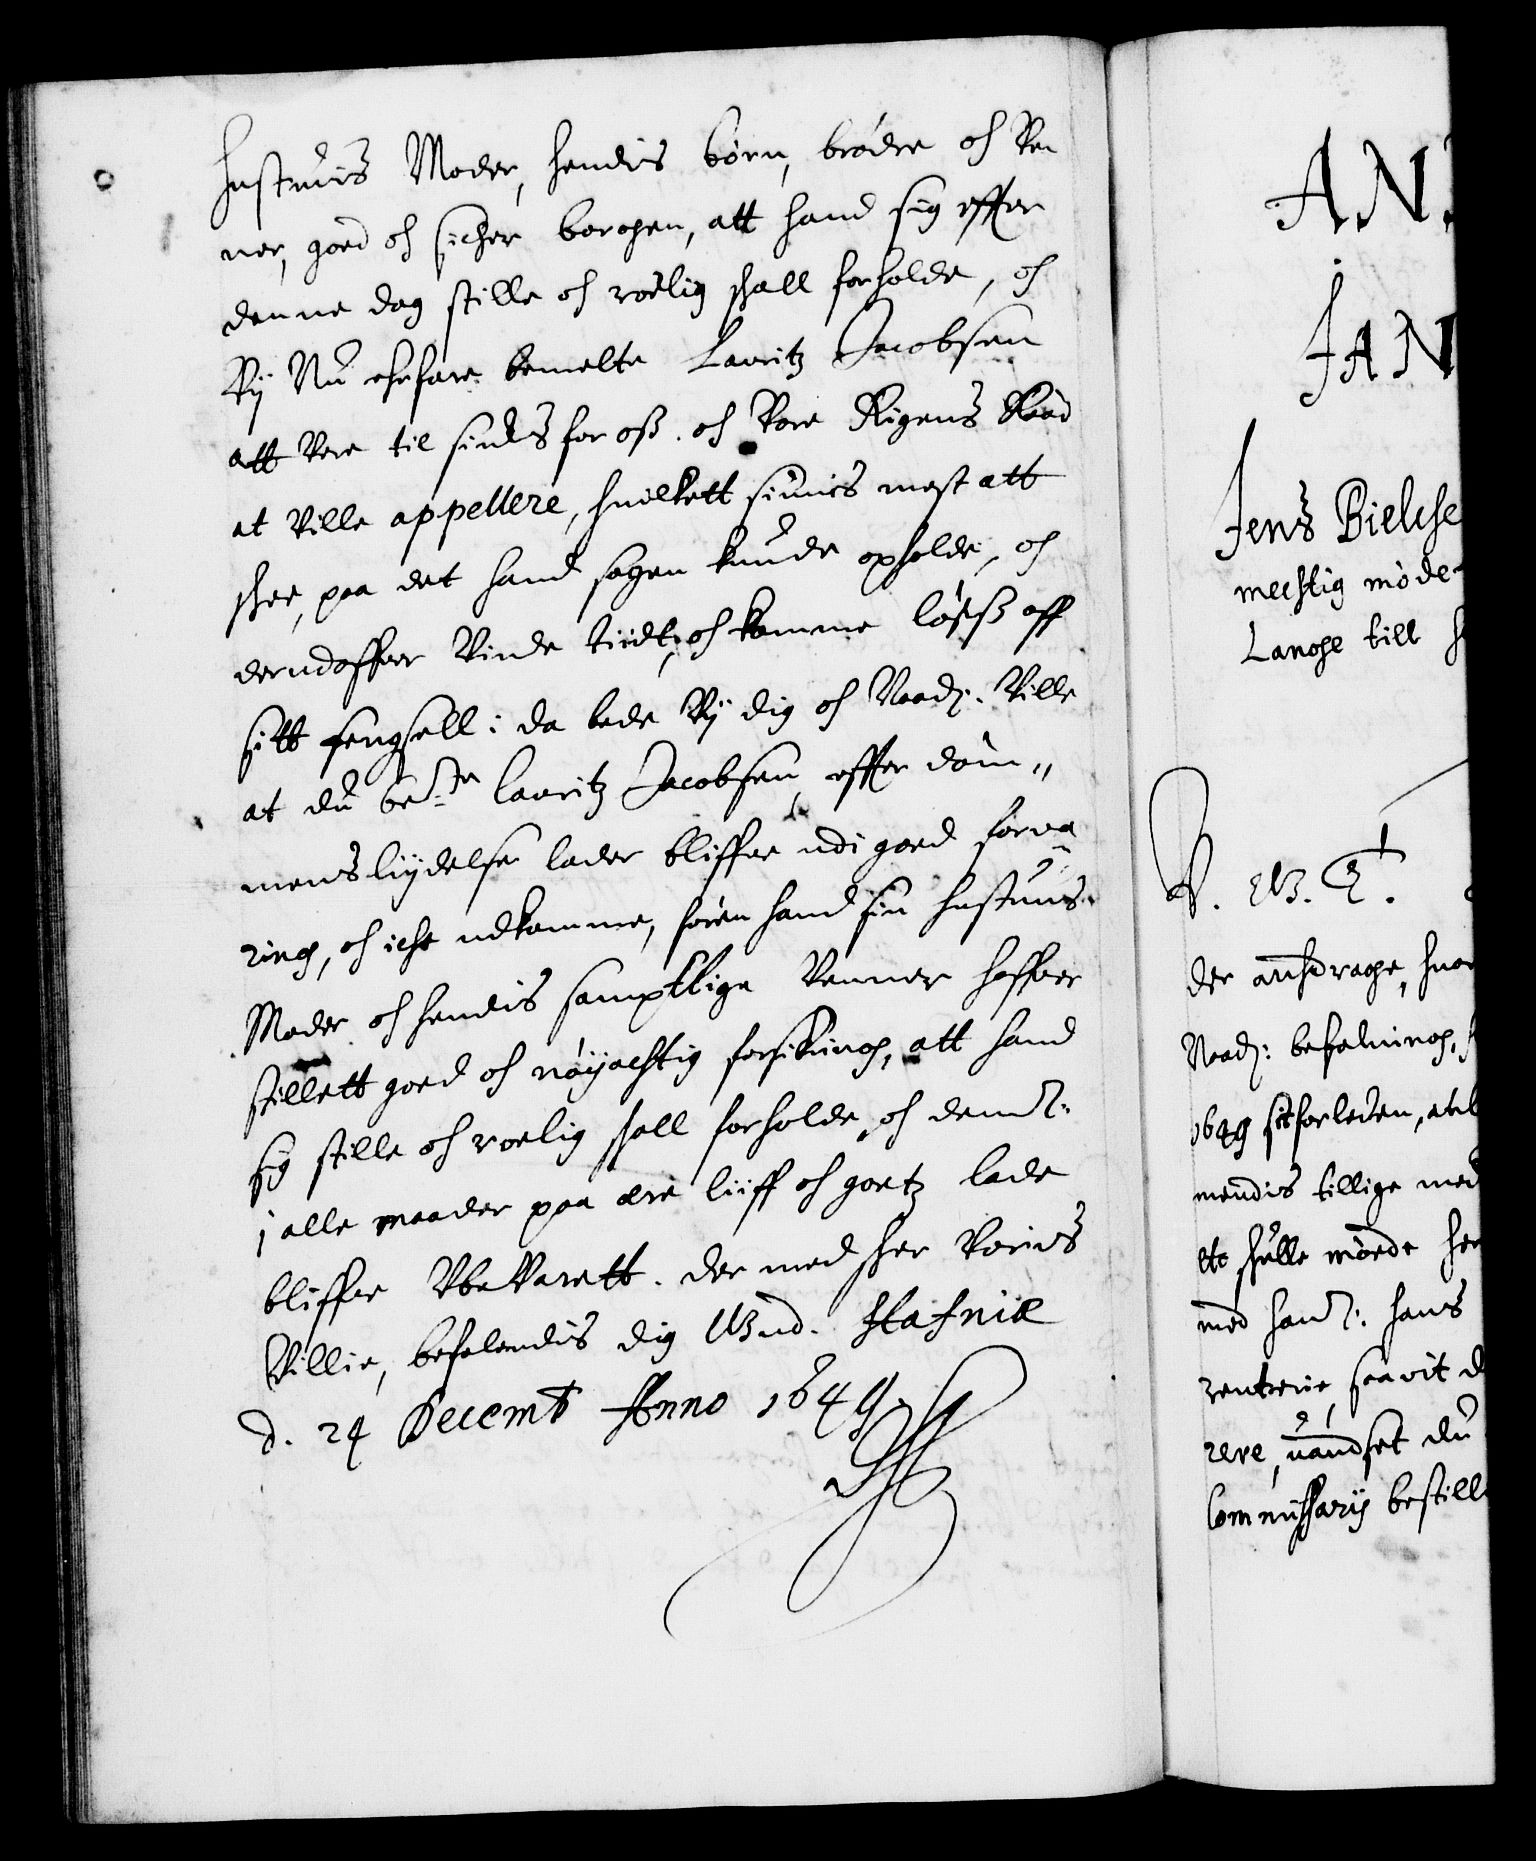 hustruis Moder, hendis børn, brødre och Ven
ner, goed och sicher borgen, att hand sig effter
denne dag stille och roelig schall forholde, och
Vij Nu erfare bemelte Lauritz Jacobsen
att Vere til sinds for oß och Vore Rigens Raad
at Ville appellere, huilkett siunis mest att
schee, paa det hand sagen kunde opholde, och
derudoffuer Vinde tiidt, och komme løsß aff
sitt fengsell: da bede Vij dig och Naadz: Ville
at du bete Lauritz Jacobsen, effter dom„
mens liydelse lader bliffue udi goed forva
ring, och iche udkomme, føren hand sin hustruis
Moder och hendis samptlige Venner haffuer
stillett goed och nøyachtig forsikring, att hand
sig stille och roelig schall forholde, och dennomz:
j alle maader paa ære liiff och goetz lade
bliffue VbeVarett. der med scher Voris
Villie, befalendis dig Gud. Hafniæ
d. 24 Decemb Anno 1649.
AN
JAN
Jens Bielche
mechtig møde
Lange till
V. G. T.
der andrage, huor
Naadz: befalning,
1649 sitforleden, at
mendis tillige med
etc schulle møede her
med hanz: hans
renterie, saavit d
rere, uandset du
Commissarij bestill